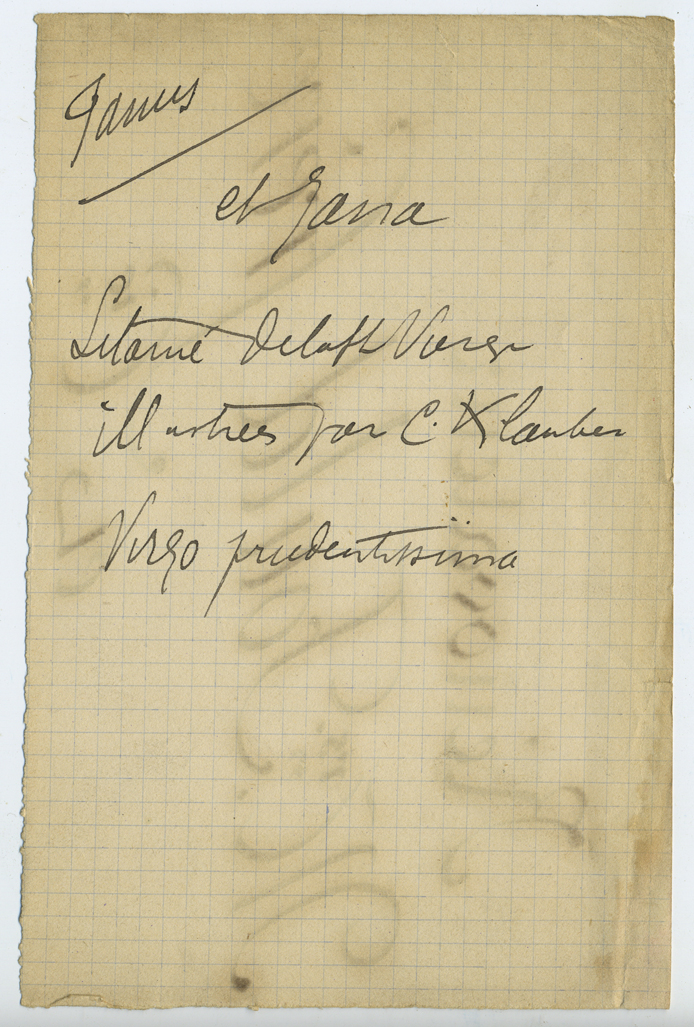 Janus
et Jana
Litanie de la Ste Vierge
illustrées par C. Klauber
Virgo prudentissima